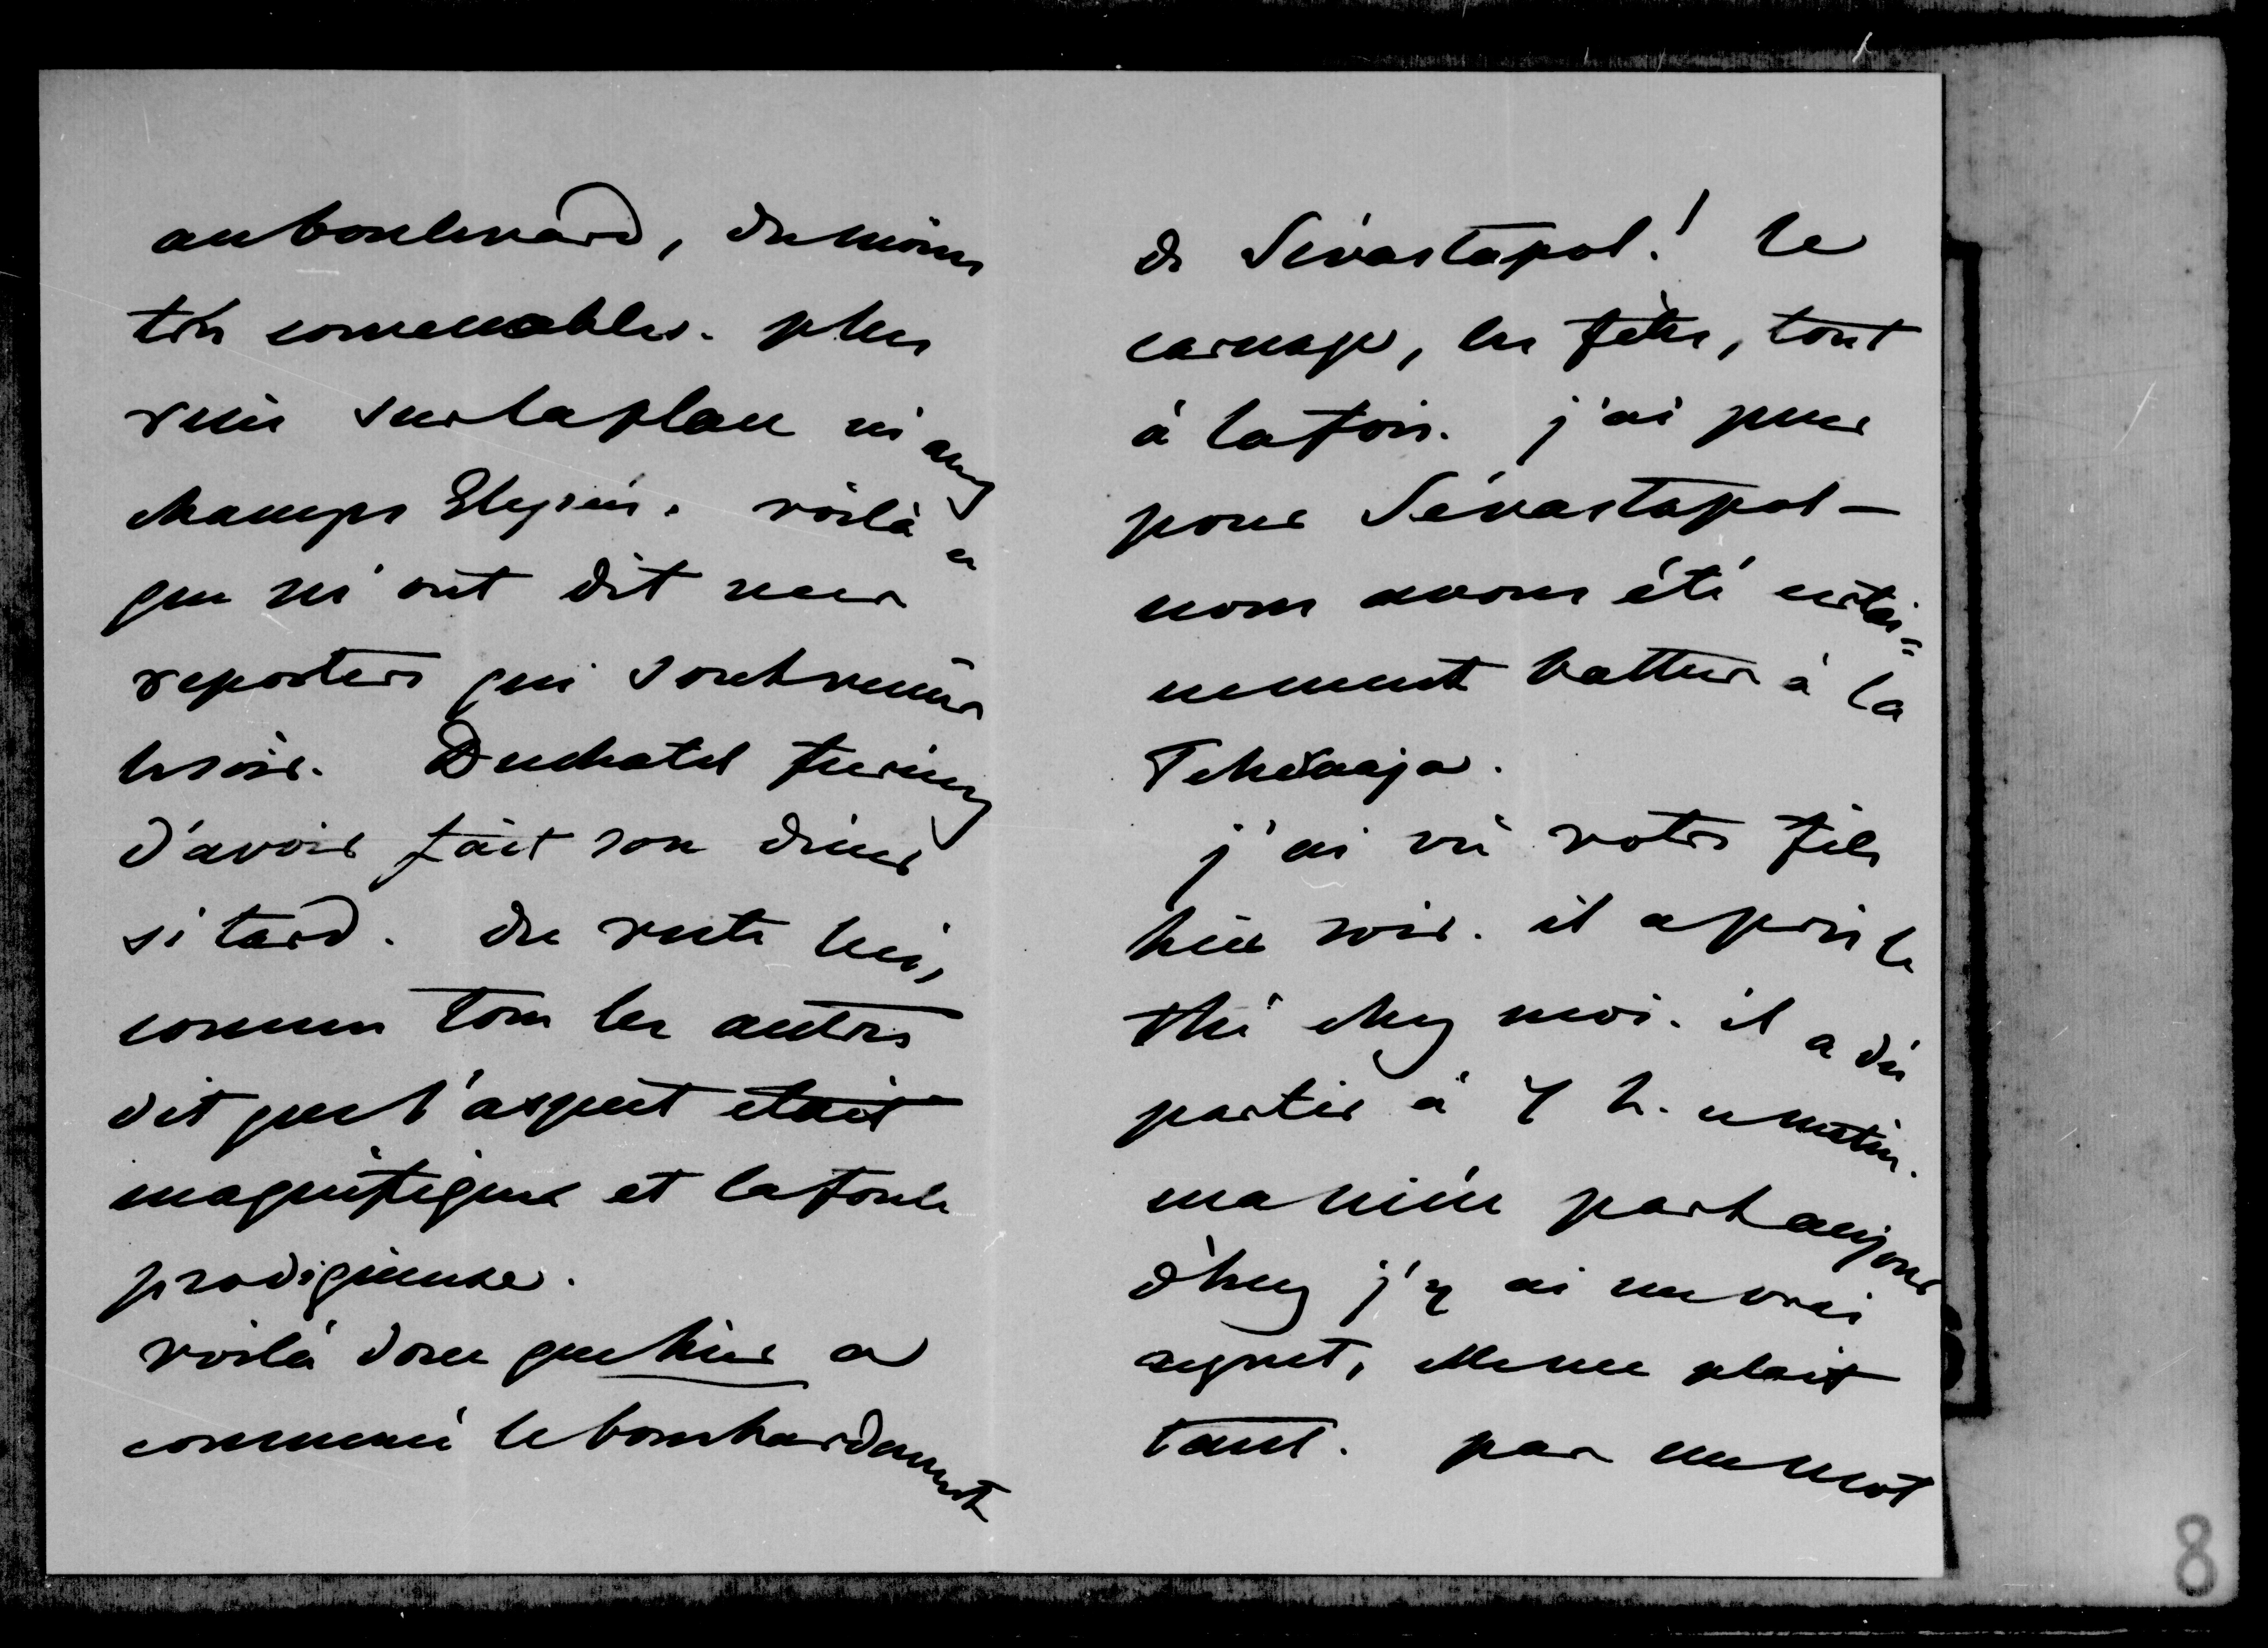 au boulevard, du moins
très convenables. plus
rien sur la place ni aux
champs Elysées. voilà ce
que m'ont dit mes
reporters qui sont venus
le soir. Duchatel furieux
d'avoir fait son diner
si tard. du reste lui,
comme tous les autres
dit que l'aspect etait
magnifique et la foule
prodigieuse.
voilà donc que hier a
commencé le bombardement
de Sévastapol! le
carnage, les fêtes, tout
à la fois. j'ai peur
pour Sévastapol -
nous avons été certai=
nement battus à la
Tchernaja.
j'ai vu votre fils
hier soir. il a pris le
thé chez moi. il a dû
partir à 7 h. ce matin.
ma nièce part aujour
d'huy j'y ai un vrai
regret, elle me plait
tant. pas un mot
8